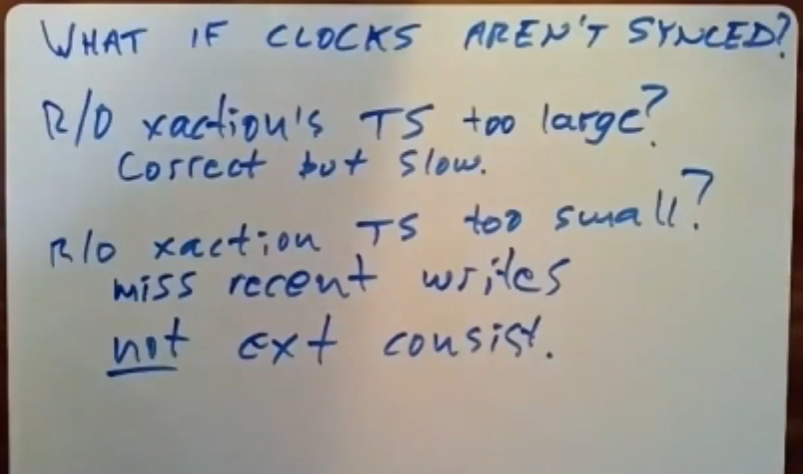 WHAT IF CLOCKS AREN'T SYNCED?
R/O xaction's TS too large?
Correct but slow.
R/O xaction TS too small?
miss recent writes
not ext consist.